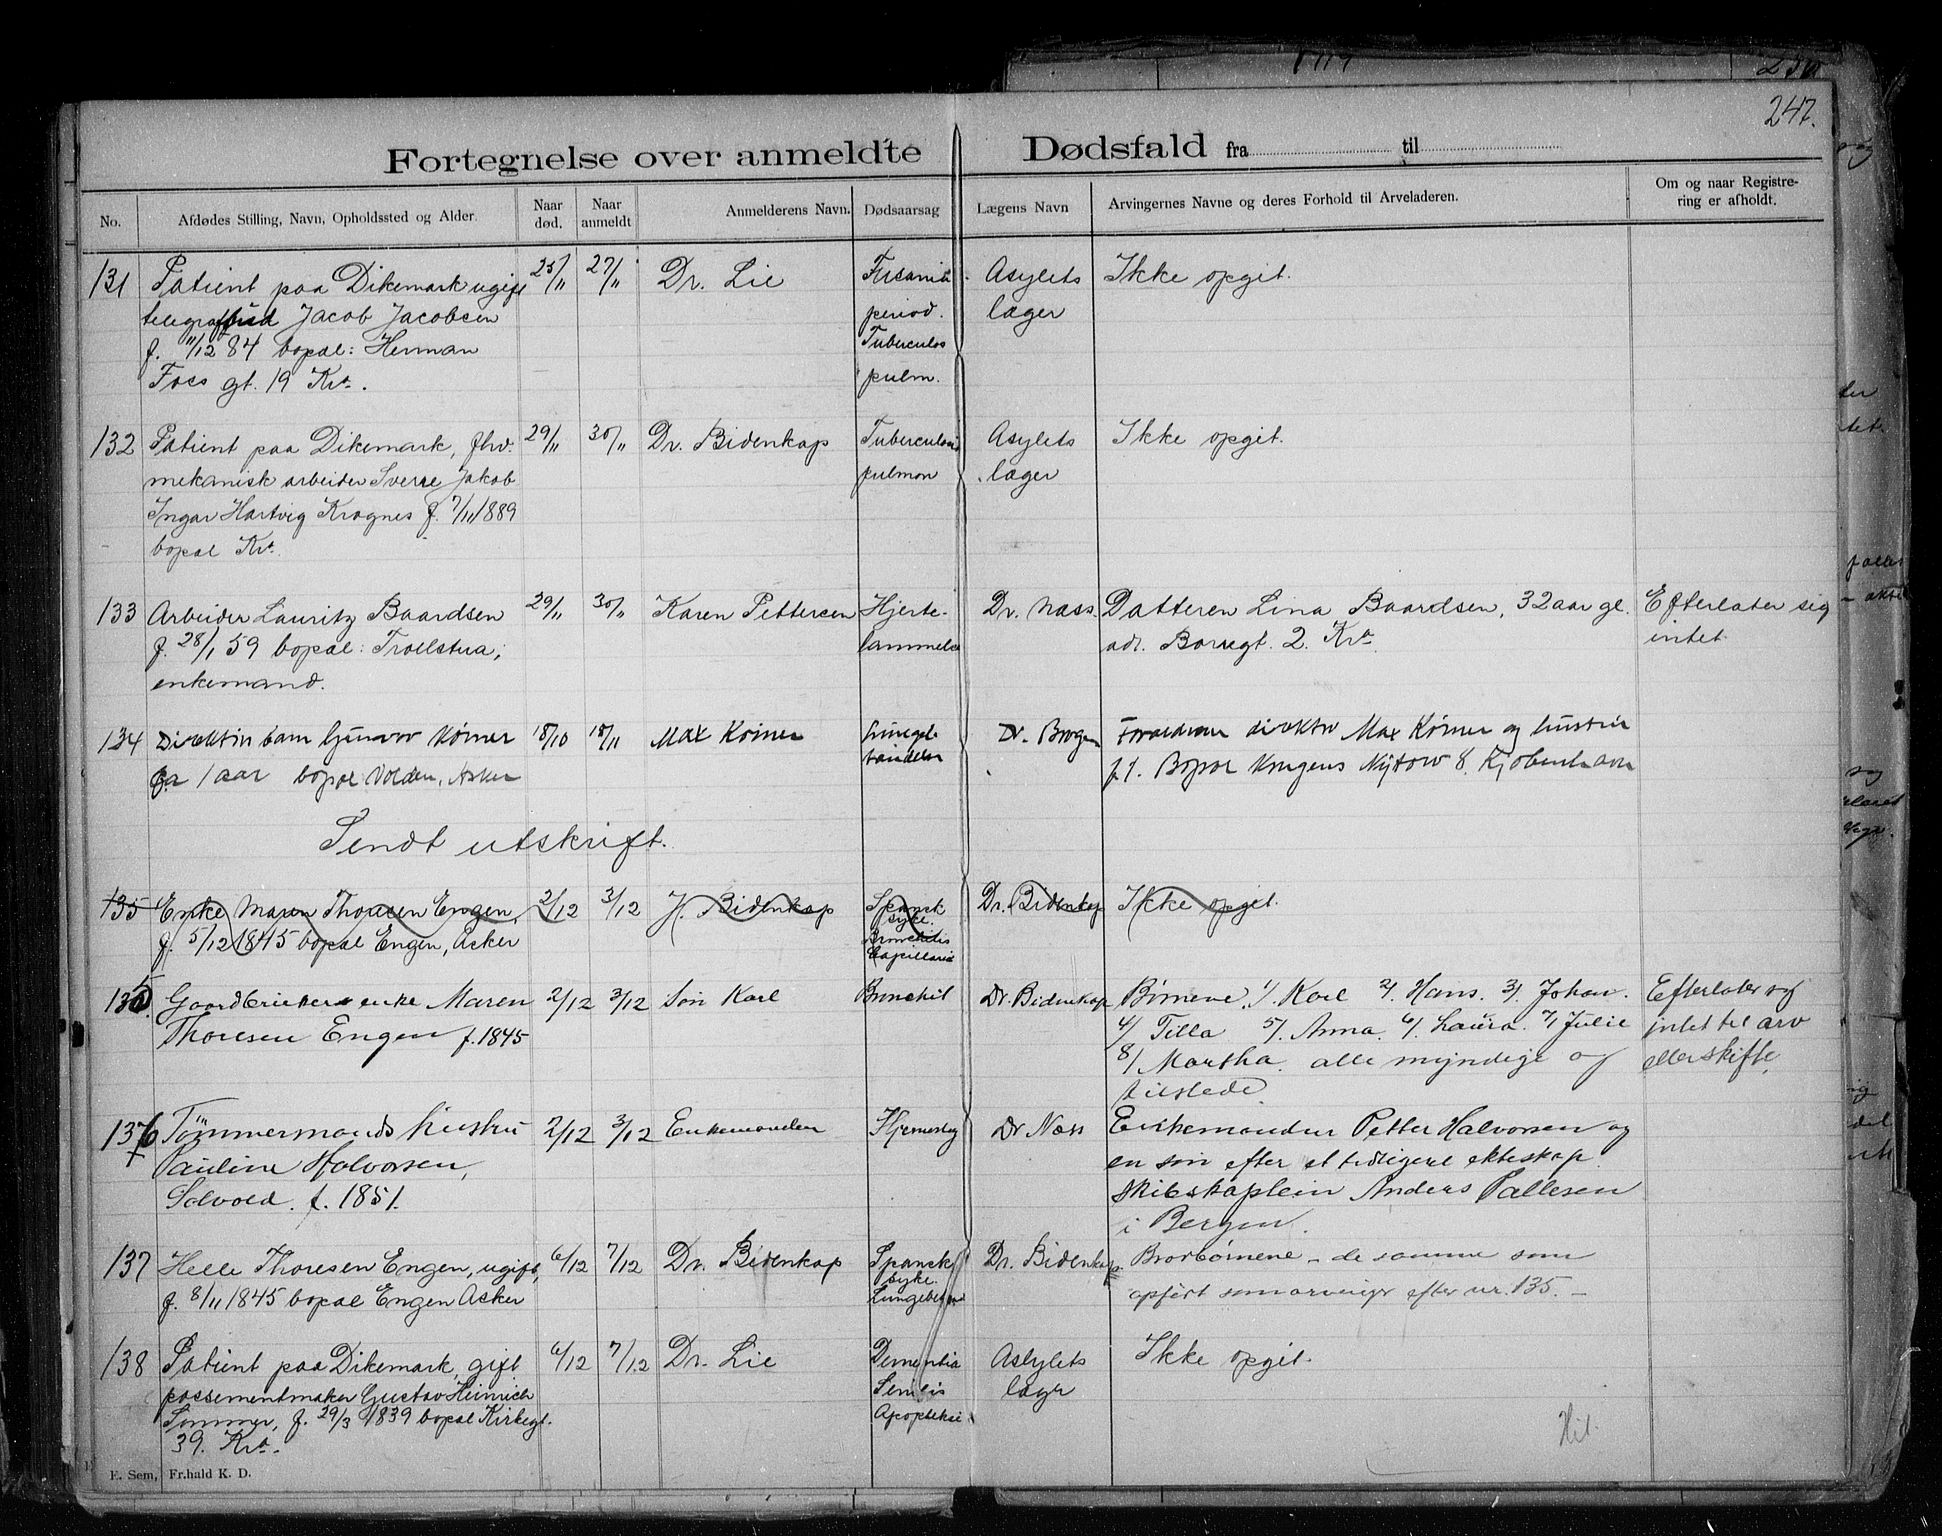 247.
Fortegnelse over anmeldte Dødsfald fra til
No. Afdødes Stilling, Navn, Opholdssted og Alder. Naar død. Naar anmeldt Anmelderens Navn. Dødsaarsag Lægens Navn Arvingernes Navne og deres Forhold til Arveladeren. Om og naar Registrering er afholdt.
131 Patient paa Dikemark ugift 25/11 27/11 Dr. Lie Asylets Ikke opgit.
Jacob Jacobsen period. læger
f. 11/12 84 bopæl: Herman Tuberculos
Foss gt. 19 Kra. pulm.
132 Patient paa Dikemark, fhv. 29/11 30/11 Dr. Bidenkap Tuberculosis Asylets Ikke opgit.
mekanisk arbeider Sverre Jakob pulmon læger
Ingar Hartvig Krognes f. 7/11 1889
bopæl Kra.
133 Arbeider Lauritz Baardsen 29/11 30/11 Karen Pettersen Hjerte- Dr. Næss. Datteren Lina Baardsen, 32 aar gl. Efterlater sig
f. 28/1 59 bopæl: Trollstua; lammelse adr. Borregt. 2. Kra. intet
enkemand.
134 Direktør barn Gunvor Körner 18/10 18/11 Max Körner Dr. Forældrene direktør Max Körner og hustru
1 aar bopæl Volden, Asker Bopæl Kongens Nytorv 8. Kjøbenhavn
Sendt utskrift.
135 Enke Maren Thoresen Engen, 2/12 3/12 J. Bidenkap Spansk Dr. Bidenkap Ikke opgit.
syke.
f. 5/12 1845 bopæl Engen, Asker Bronchitis
Capillaris
135. Gaardbrukerenke Maren 2/12 3/12 Søn Karl Bronchit Dr. Bidenkap Børnene. 1/ Karl 2/. Hans. 3/. Johan. Efterlater sig
Thoresen Engen f. 1845 4/ Tilla 5/. Anna. 6/. Laura. 7/. Julie intet til arv
8/ Martha. alle myndige og eller skifte.
tilstede.
136 Tømmermands hustru 2/12 3/12 Enkemanden Dr Næss Enkemanden Petter Halvorsen og
Pauline Halvorsen, en søn efter et tidligere ekteskap
Solvold. f. 1851. skibskaptein Anders Pallesen
i Bergen.
137 Helle Thoresen Engen, ugift, 6/12 7/12 Dr. Bidenkap Spansk Dr. Bidenkap Brorbørnene – de samme som
syke.
f. 8/11 1845 bopæl Engen Asker opført som arvinger efter nr. 135. –
138 Patient paa Dikemark, gift 6/12 7/12 Dr. Lie Dementia Asylets Ikke opgit.
possementmaker Gustav Heinrich Senilis læger
Sommer, f. 29/3 1839 bopæl Kirkegt. Apopleksi
39. Kra.
Hit.
E. Sem, Fr.hald K. D.